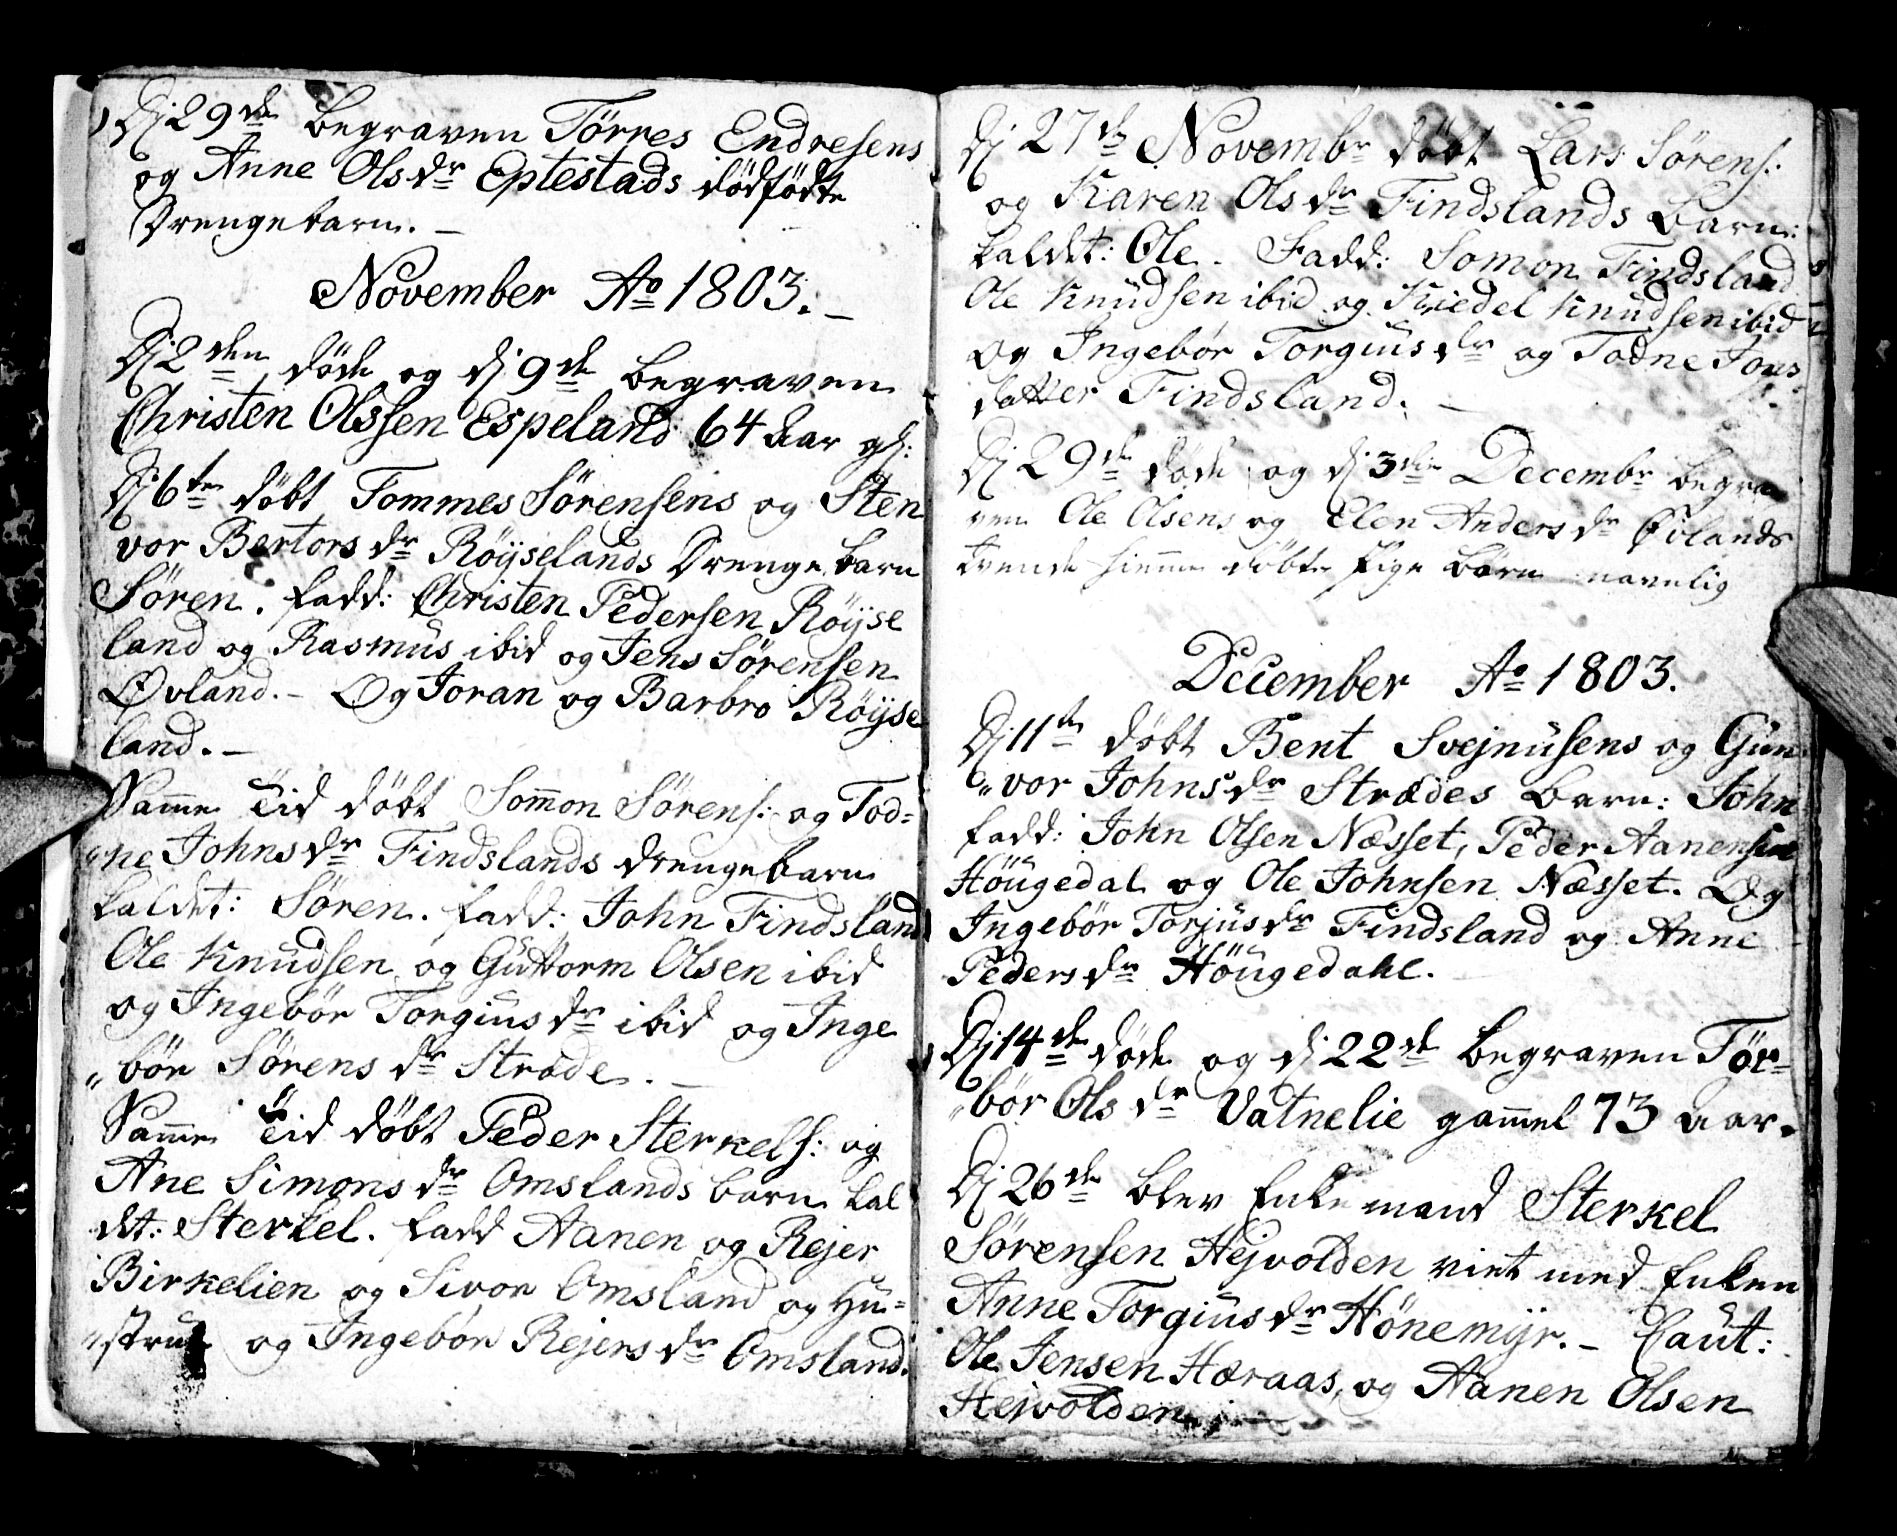 Dj 29de begraven Törres Endresens
og Anne Olsdr Eptestads dödfödte
Drengebarn. –
November Ao 1803. –
Dj 2den döde og dj 9de begraven
Christen Olssen Espeland 64 Aar gl:
Dj 6te döbt Tommes Sörensens og Sten
vor Bertors dr Röyselands Drenge barn
Sören. fadd: Christen Pedersen Röyse
land og Rasmus ibid og Jens Sörensen
Øvland. – Og Joran og Barbro Röyse
land. –
Samme Tid döbt Somon Sörens: og Tod=
"ne Johnsdr Findslands drengebarn
kaldet: Sören. fadd: John Findsland
Ole Knudsen og Guttorm Olsen ibid
og Ingebör Torgiusdr ibid og Inge
"bör Sörens dr Strade. –
Samme Tid döbt Peder Sterkels: og
Ane Simons dr Omslands barn kal
det: Sterkel. fadd Aanen og Rejer
Birkelien og Sivor Omsland og Hu=
"strue og Ingebör Rejersdr Omsland.
Dj 27de Novembr döbt Lars Sörens:
og Karen Olsdr Findslands Barn:
kaldet: Ole. Fadd: Somon Findsland
Ole Knudsen ibid og Kiedel Knudsen ibid
Og Ingebör Torgius dr og Todne Jons
datter Findsland. –
Dj 29de döde og dj 3die Decembr begra
ven Ole Olsens og Elen Anders dr Øvlands
tvende hiemme döbte Pige Börn navnlig
December Ao 1803.
Dj 11te döbt Bent Svejnusens og Gun
"vor Johnsdr Strædes Barn: John
fadd: John Olsen Næsset, Peder Aanensen
Höugedal og Ole Johnsen Næsset. Og
Ingebör Torjusdr Findsland og Anne
Pedersdr Höugedahl.
Dj 14de döde og dj 22de begraven Tör=
"bör Ols dr Vatnelie gammel 73 aar.
Dj 26de blev Enkemand Sterkel
Sörensen Hejvolden viet med Enken
Anne Torgiusdr Hönemyr. – Caut:
Ole Jensen Hæraas, og Aanen Olsen
Hejvolden. –